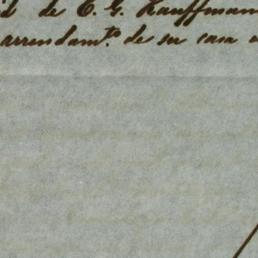 de C. G. Kauffman
arrendam.to de su casa